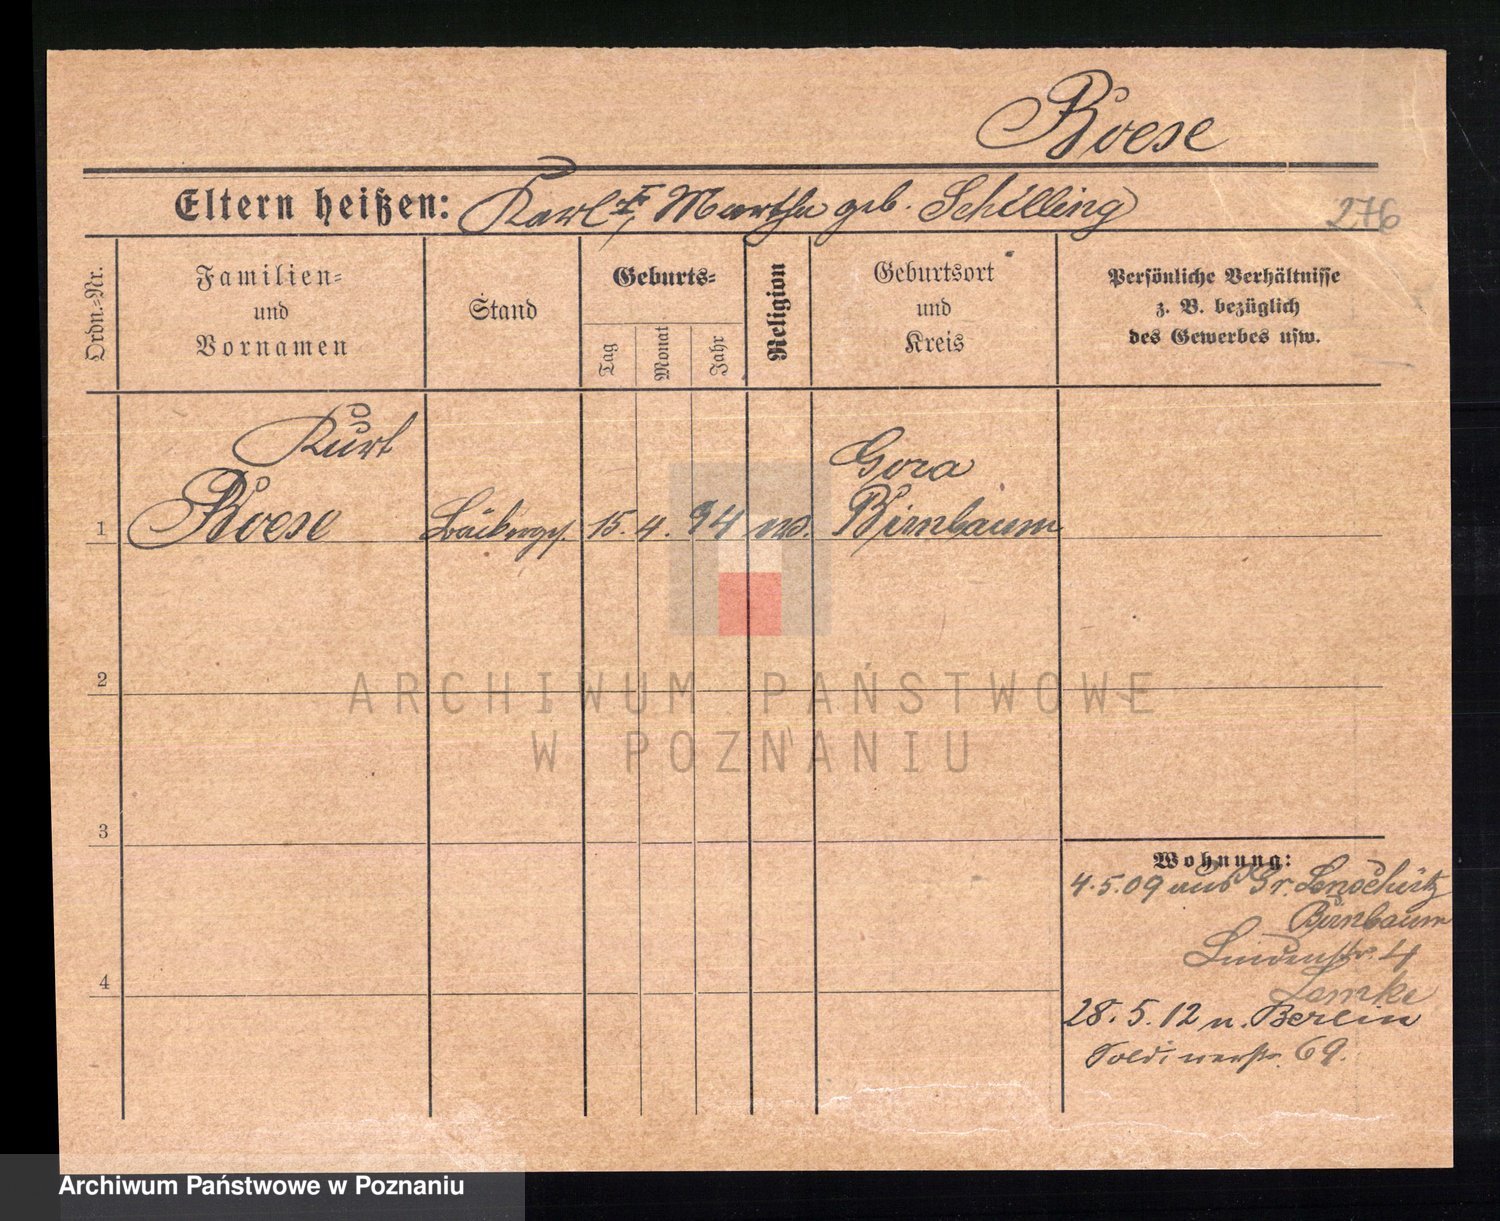 Boese
Eltern heißen: Karl †, Martha geb. Schilling
276
Ordn.-Nr.
Familien-
und
Vornamen
Stand
Geburts-
Tag
Monat
Jahr
Religion
Geburtsort
und
Kreis
Persönliche Verhältnisse
z. B. bezüglich
des Gewerbes usw.
Kurt
Gora
1 Boese Bäckerges. 15. 4. 94 Birnbaum
2
3
4
Wohnung:
4.5.09 aus Gr. Lenschütz
Birnbaum
Lindenstr. 4
Lemke
28.5.12 n. Berlin
Soldinerstr. 69.
ARCHIWUM PAŃSTWOWE
W POZNANIU
Archiwum Państwowe w Poznaniu